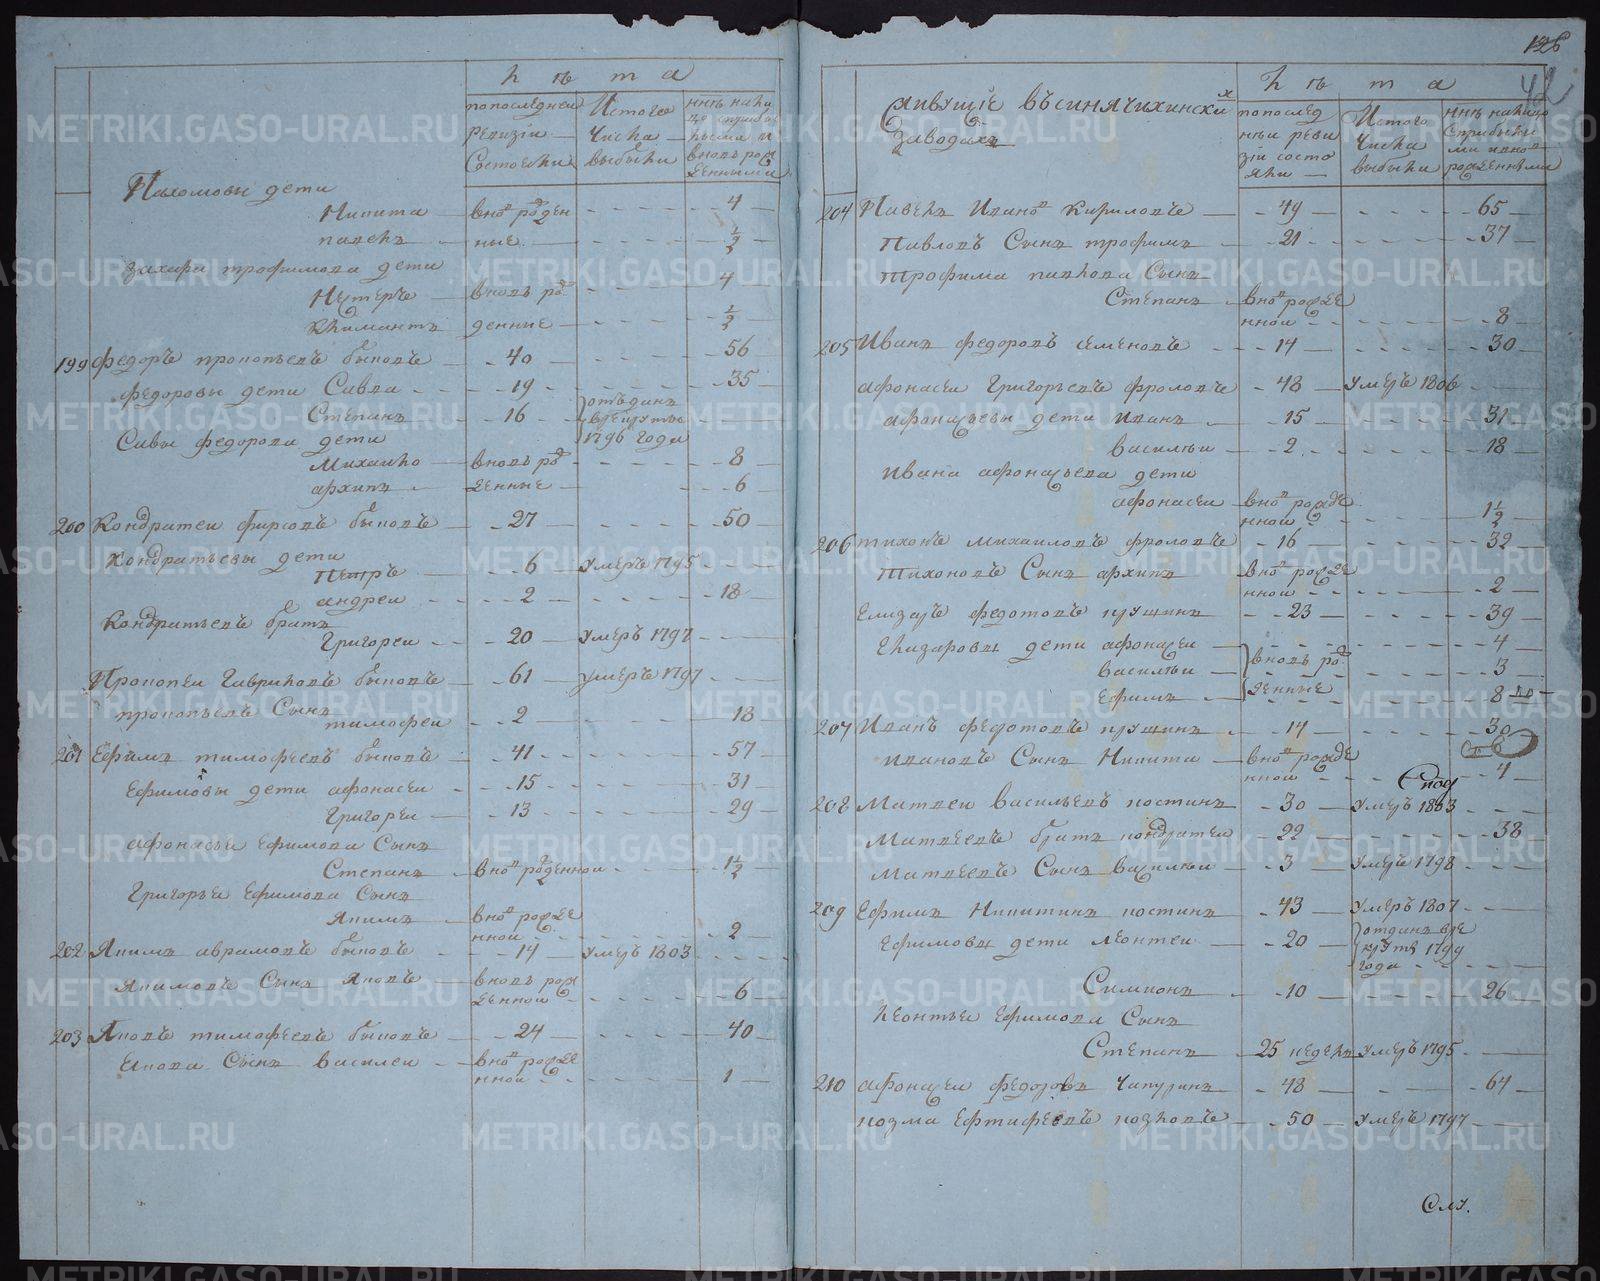 лѣта
по последнеи
ревизiи
состояли
Из того
числа
выбыли
ннѣ на ли
цо с прибы
лыми и
вновь рож
денными
Пахомовы дети
Никита вновь рожден 4
павелъ ные 1/2
Захара трофимова дети
Нестеръ вновь рож 4
Климантъ денные 1/2
199 Федоръ прокопьевъ быковъ 40 56
Федоровы дети Савва 19 35
Степанъ 16 отъданъ
в рекруты
1796 года
Савы федорова дети
Михаило вновь рож 8
архипъ денные 6
200 Кондратеи фирсовъ быковъ 27 50
Кондратьевы дети
Петръ 6 умеръ 1795
андреи 2 18
Кондратьевъ братъ
Григореи 20 умеръ 1797
Прокопеи Гавриловъ быковъ 61 умеръ 1797
прокопьевъ Сынъ
тимофеи 2 18
201 Ефимъ тимофеевъ быковъ 41 57
Ефимовы дети афонасеи 15 31
Григореи 13 29
афонасья Ефимова Сынъ
Степанъ вновь рожденнои 1 1/2
Григорьи Ефимова Сынъ
Якимъ вновь рожде
ннои 2
202 Якимъ аврамовъ быковъ 14 умеръ 1803
Якимовъ Сынъ Яковъ вновь рож
деннои 6
203 Яковъ тимофеевъ быковъ 24 40
Якова Сынъ василеи вновь рожде
ннои 1
126
42
Живущiе въ синячихинскихъ
заводахъ
лѣта
по послед
неи реви
зiи состо
яли
Из того
числа
выбыли
ннѣ на лицо
с прибылы
ми и вновь
рожденными
204 Павелъ Ивановъ Кириловъ 49 65
Павловъ Сынъ трофимъ 21 37
Трофима павлова Сынъ
Степанъ вновь рожде
ннои 8
205 Иванъ федоровъ семеновъ 14 30
афонасеи Григорьевъ фроловъ 48 умеръ 1806
афонасьевы дети иванъ 15 31
василеи 2 18
Ивана афонасьева дети
афонасеи вновь рожде
ннои 1 1/2
206 тихонъ михаиловъ фроловъ 16 32
Тихоновъ Сынъ архипъ вновь рожде
ннои 2
Елизаръ федотовъ пушинъ 23 39
Елизаровы дети афонасеи 4
василеи вновь рож 3
Ефимъ денные 8
207 Иванъ федотовъ пушинъ 14 30
ивановъ Сынъ Никита вновь рожде
ннои 4
208 Матвеи васильевъ костинъ 30 умеръ 1803
Матвеевъ братъ кондратеи 22 38
Матвеевъ Сынъ василеи 3 умеръ 1798
209 Ефимъ Никитинъ костинъ 43 умеръ 1807
Ефимовы дети леонтеи 20 отданъ в ре
круты 1799
года
Симионъ 10 26
Леонтьи Ефимова Сынъ
Степанъ 25 недель умеръ 1795
210 афонасеи федоровъ Чапуринъ 48 64
козма Ефтифеевъ козловъ 50 умеръ 1797